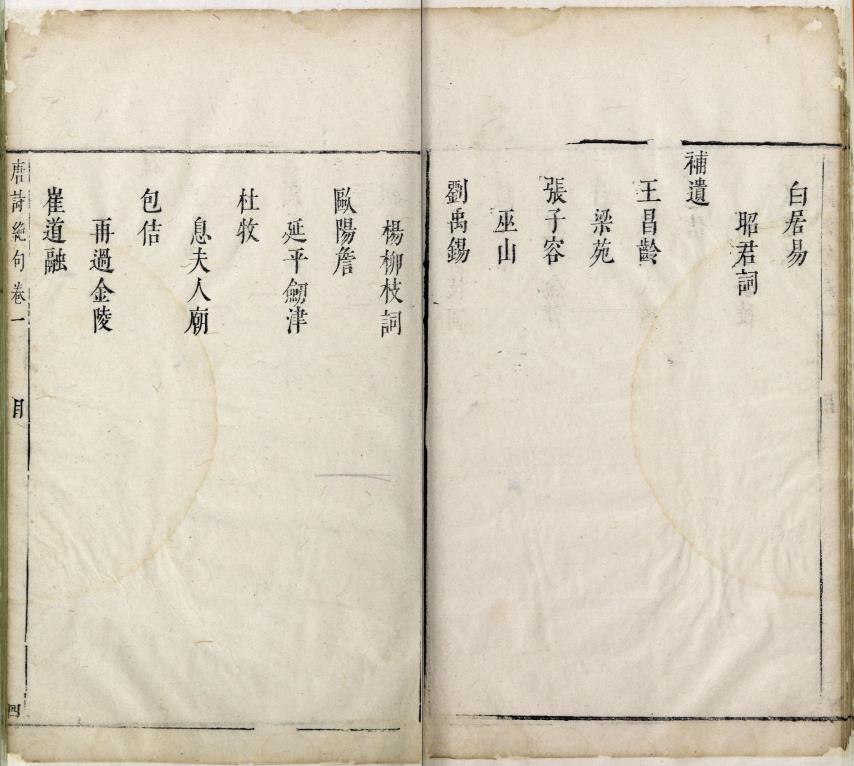 白居易
昭君詞
補遺
王昌齡
梁苑
張子容
巫山
劉禹錫
楊柳枝詞
歐陽詹
延平劒津
杜牧
息夫人廟
包佶
再過金陵
崔道融
唐詩絶句卷一 目 四